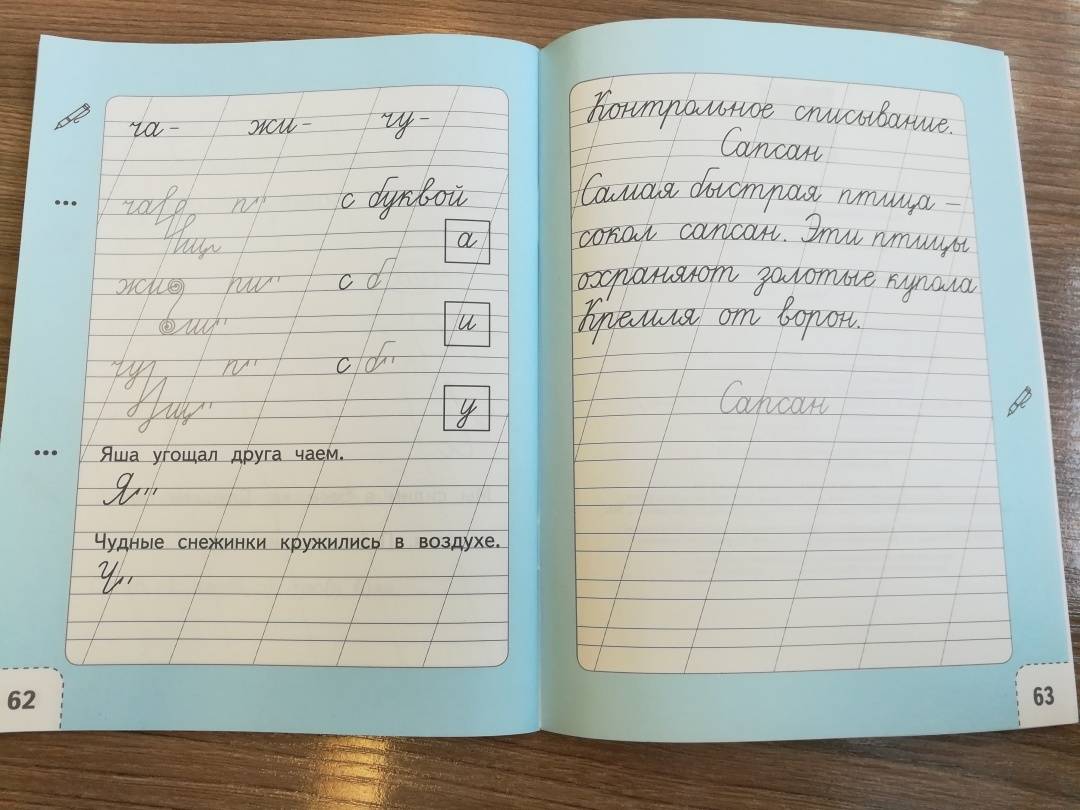 ча- жи- чу-
ча п" с буквой
щ а
жи пи" с б
ши" и
чу п" с б"
щу" у
Яша угощал друга чаем.
Я"
Чудные снежинки кружились в воздухе.
Ч"
62
Контрольное списывание.
Сапсан
Самая быстрая птица –
сокол сапсан. Эти птицы
охраняют золотые купола
Кремля от ворон.
Сапсан
63